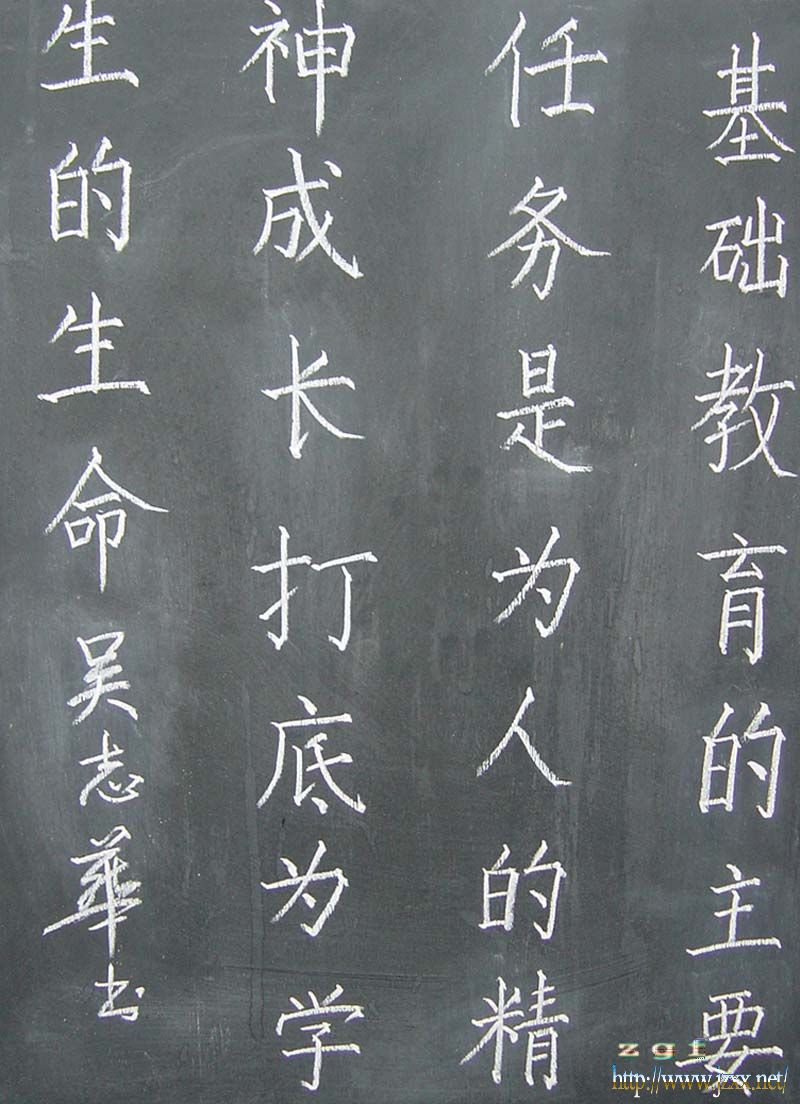 基础教育的主要
任务是为人的精
神成长打底为学
生的生命吴志华书
zgf
http://www.jzxx.net/